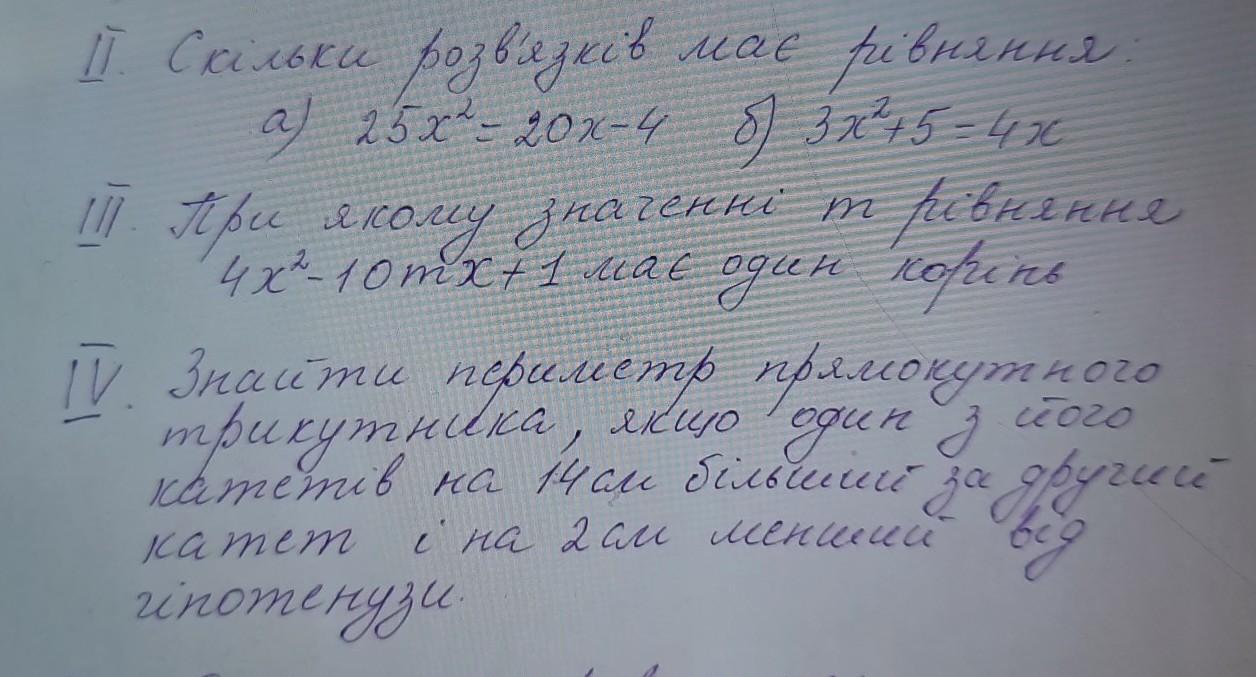 II. Скільки розв'язків має рівняння:
а) 25x² = 20x - 4 б) 3x² + 5 = 4x
III. При якому значенні m рівняння
4x² - 10mx + 1 має один корінь
IV. Знайти периметр прямокутного
трикутника, якщо один з його
катетів на 14см більший за другий
катет і на 2см менший від
гіпотенузи.